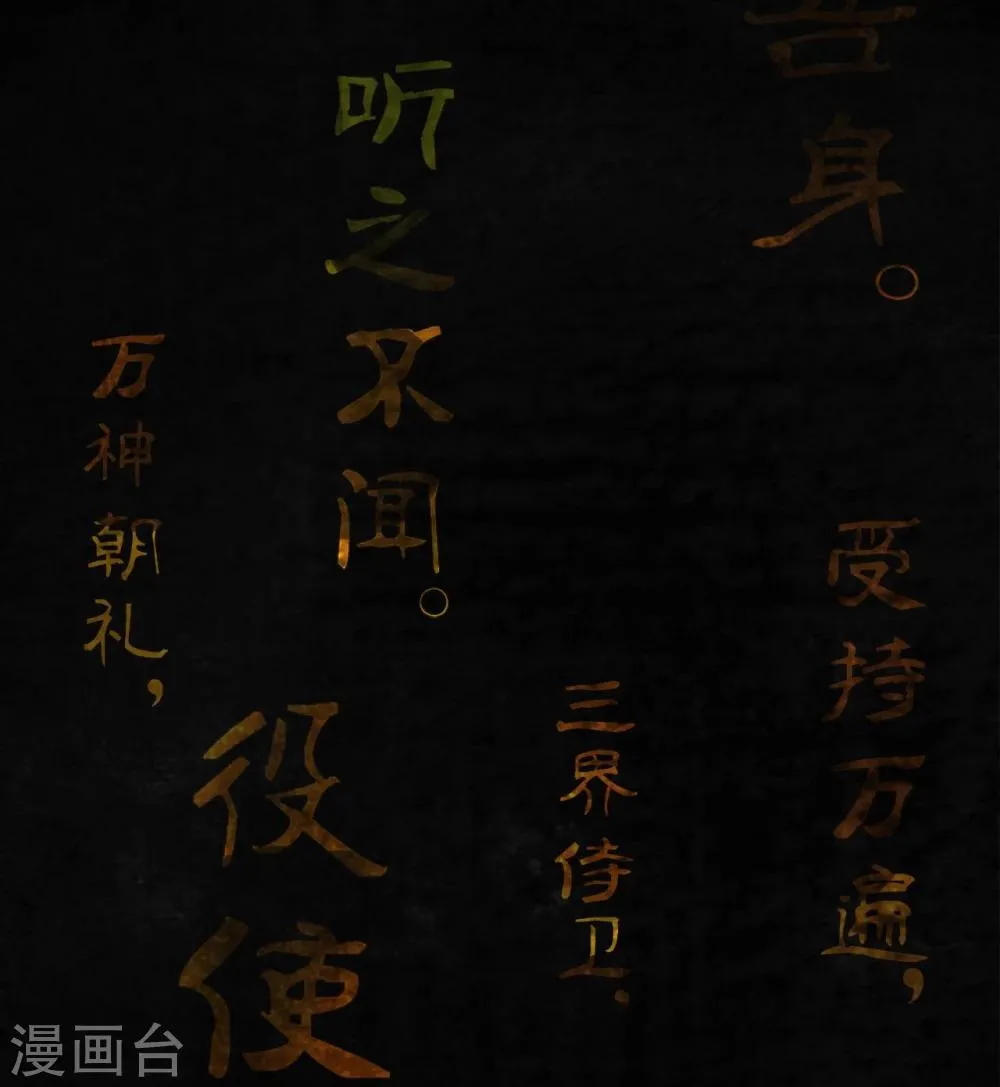 吾身。
受持万遍，
三界侍卫.
听之不闻。
役使
万神朝礼，
漫画台